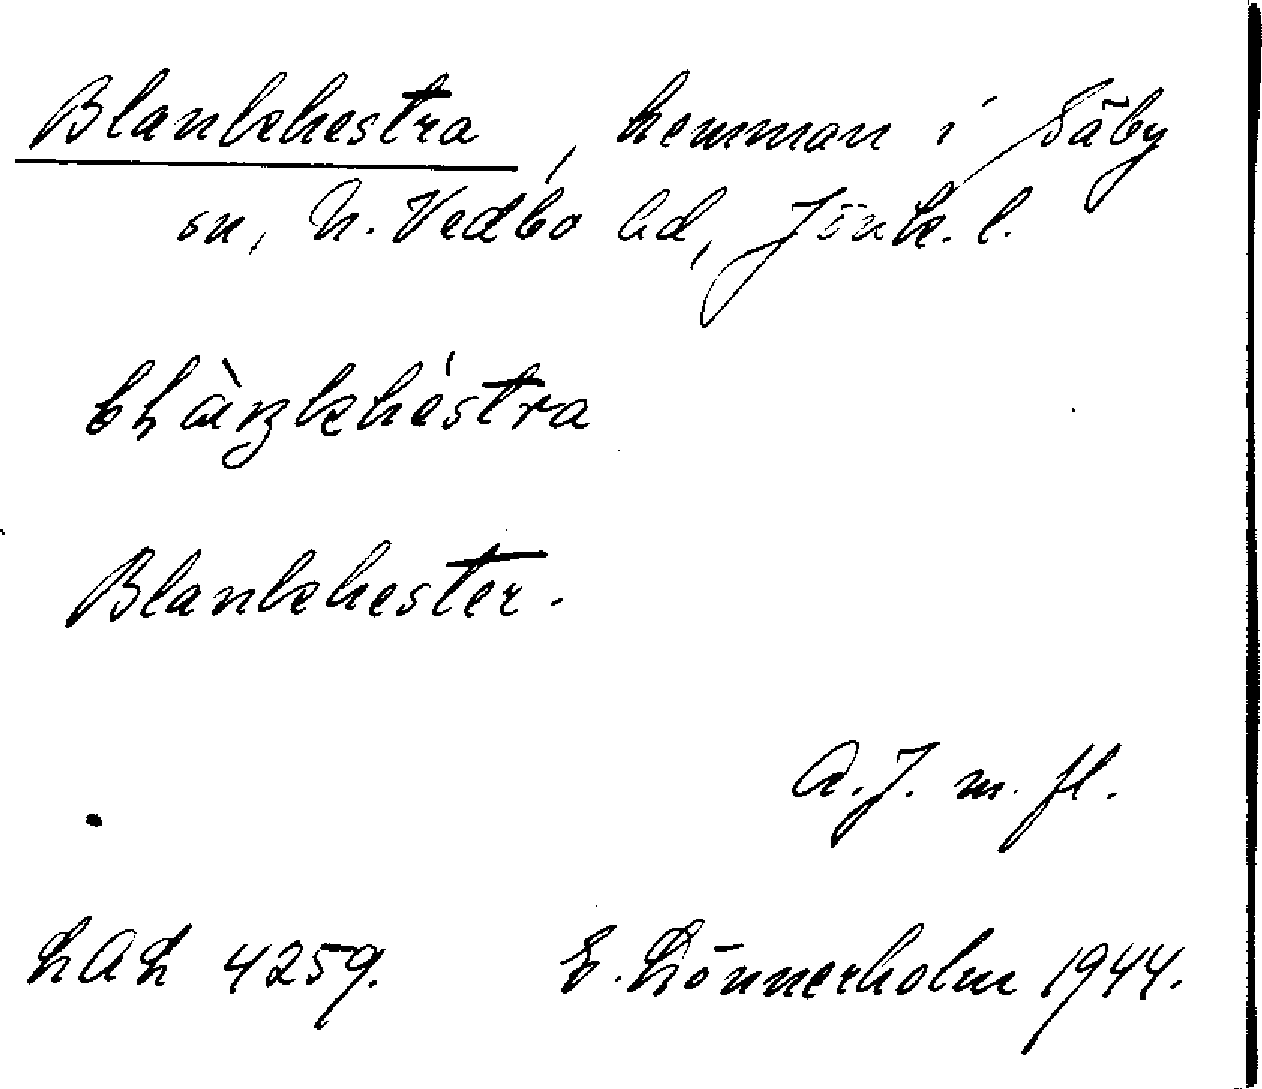 Blankhestra, hemman i Säby
sn, N. Vedbo hd, Jönk. l.
blàŋkhéstra
Blankhester.
A. J. m. fl.
LAL 4259. E. Lönnerholm 1944.